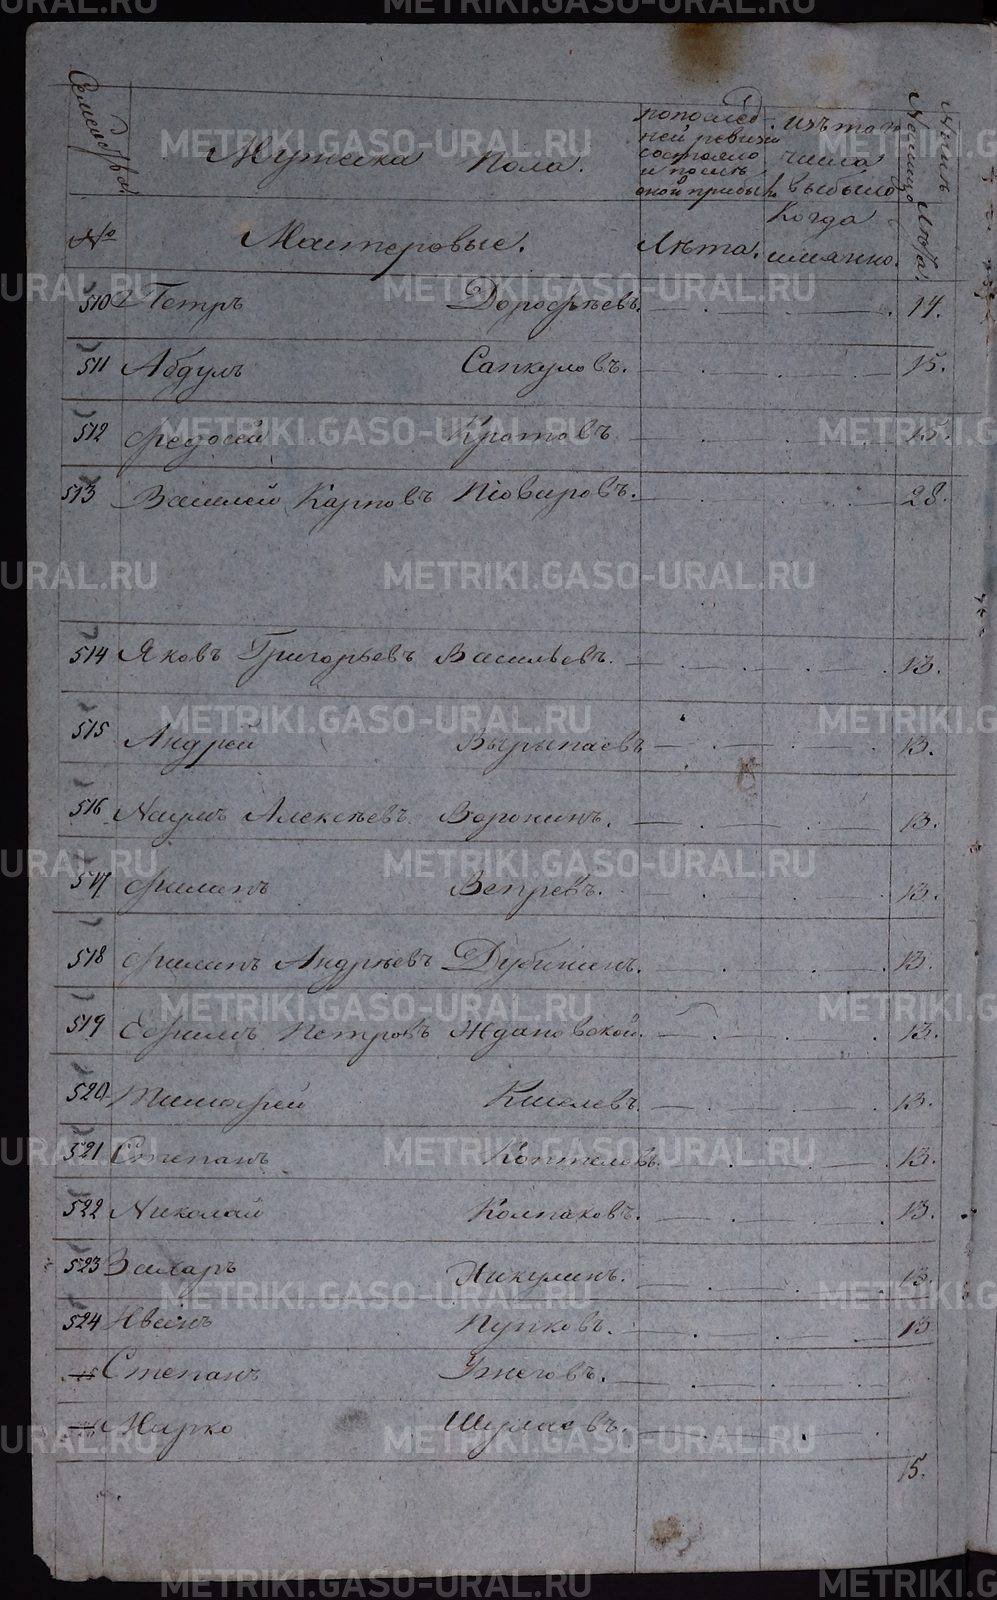 METRIKI.GASO-URAL.RU
Семействъ
Мужеска Пола.
по послѣд
ней ревизіи
состояло
и послѣ
оной прибыло
Изъ того
числа
выбыло
Нынѣ
Налицо
№
Мастеровые.
Лѣта.
Когда
имянно.
Лѣта.
510 Петръ Дорофѣевъ. 14.
511 Абдулъ Сапкуловъ. 15.
512 Федосей Кротовъ 15.
513 Василей Карповъ Пновировъ. 28.
514 Яковъ Григорьевъ Васильевъ. 13.
515 Андрей Вырыпаевъ 13.
516 Наумъ Алексѣевъ Воронинъ. 13.
517 Филипъ Вепревъ. 13.
518 Филипъ Андрѣевъ Дубининъ. 13.
519 Ефимъ Петровъ Ждановской. 13.
520 Тимофей Киселевъ. 13.
521 Степанъ Коптеловъ. 13.
522 Николай Колпаковъ. 13.
523 Захаръ Никулинъ. 13.
524 Иванъ Пупковъ. 13
Степанъ Ужеговъ.
Марко Шулаевъ.
15.